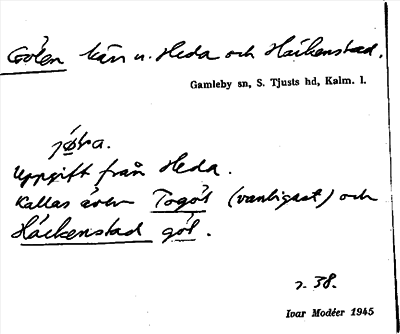 Gölen kärr u. Heda och Häckenstad.
Gamleby sn, S. Tjusts hd, Kalm. l.
Uppgift från Heda.
Kallas även Togöl (vanligast) och
Häckenstad göl.
38.
Ivar Modéer 1945